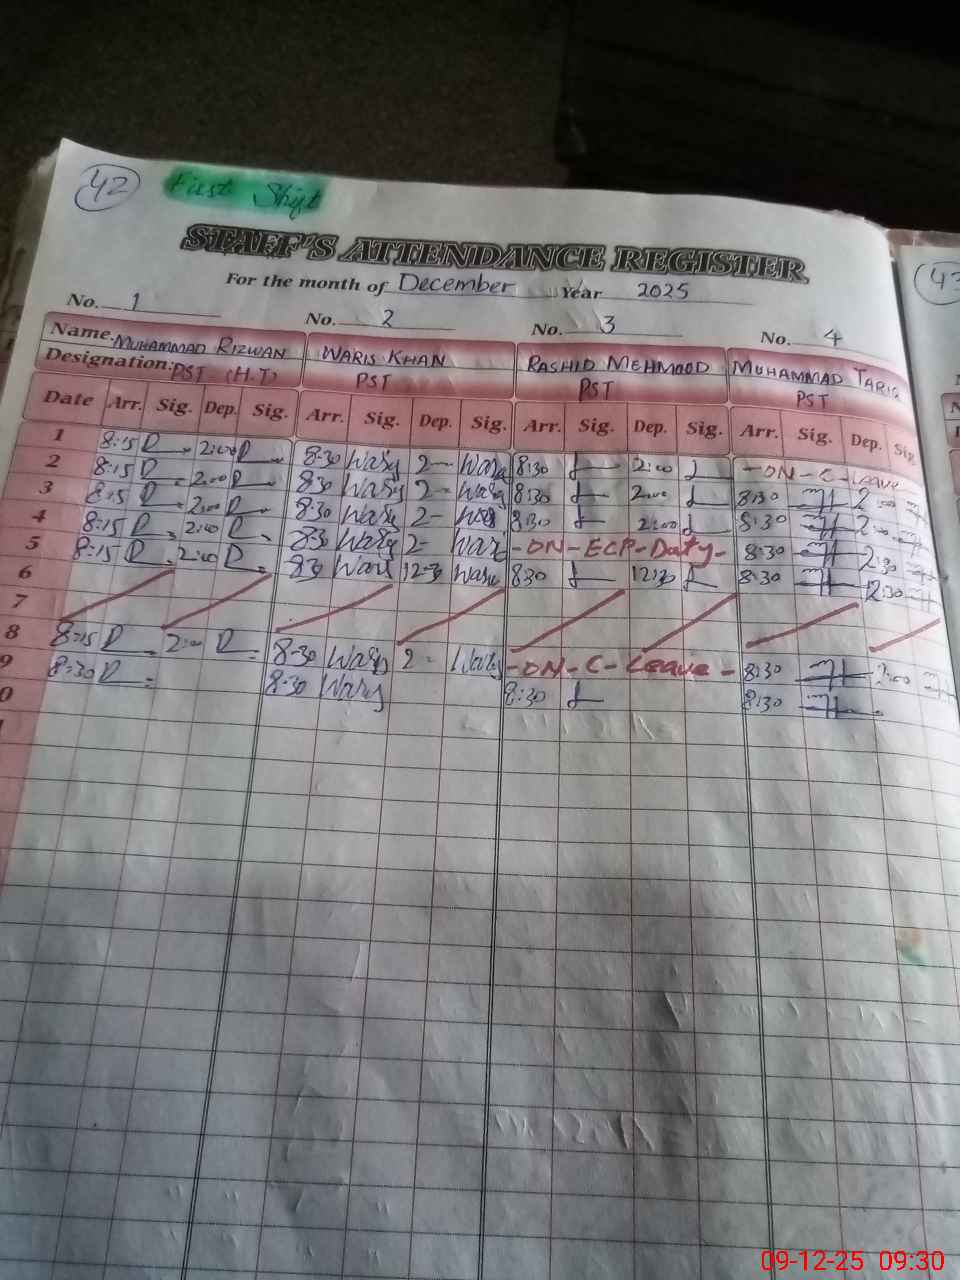 42 First Shift
STAFF'S ATTENDANCE REGISTER
For the month of December Year 2025
No. 1 No. 2 No. 3 No. 4
Name. MUHAMMAD RIZWAN WARIS KHAN RASHID MEHMOOD MUHAMMAD TARIQ
Designation: PST (H.T) PST PST PST
Date Arr. Sig. Dep. Sig. Arr. Sig. Dep. Sig. Arr. Sig. Dep. Sig. Arr. Sig. Dep. Sig.
1 8:15 2:00 8:30 2- 8:30 2:00 -ON-C-Leave
2 8:15 2:00 8:30 2- 8:30 2:00 8:30 2:00
3 8:15 2:00 8:30 2- 8:30 2:00 8:30 2:00
4 8:15 2:00 8:30 2- -ON-ECP-Duty- 8:30 2:30
5 8:15 2:00 8:30 12-30 8:30 12:30 8:30 12:30
6
7
8 8:15 2:00 8-30 2- -ON-C-Leave- 8:30 2:00
9 8:30 8:30 8:30 8:30
0
43
09-12-25 09:30